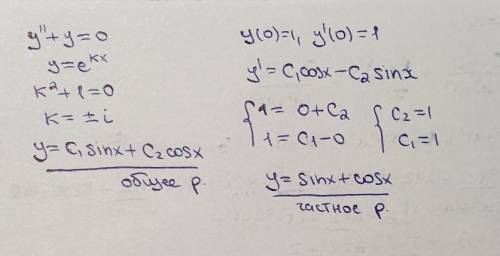 y″ + y = 0
y = e^{kx}
k² + 1 = 0
k = ± i
y = C₁ sinx + C₂ cosx
общее р.
y(0)=1, y′(0)=1
y′ = C₁cosx − C₂ sinx
{ 1 = 0 + C₂ { C₂ = 1
1 = C₁ − 0 C₁ = 1
y = sinx + cosx
частное р.